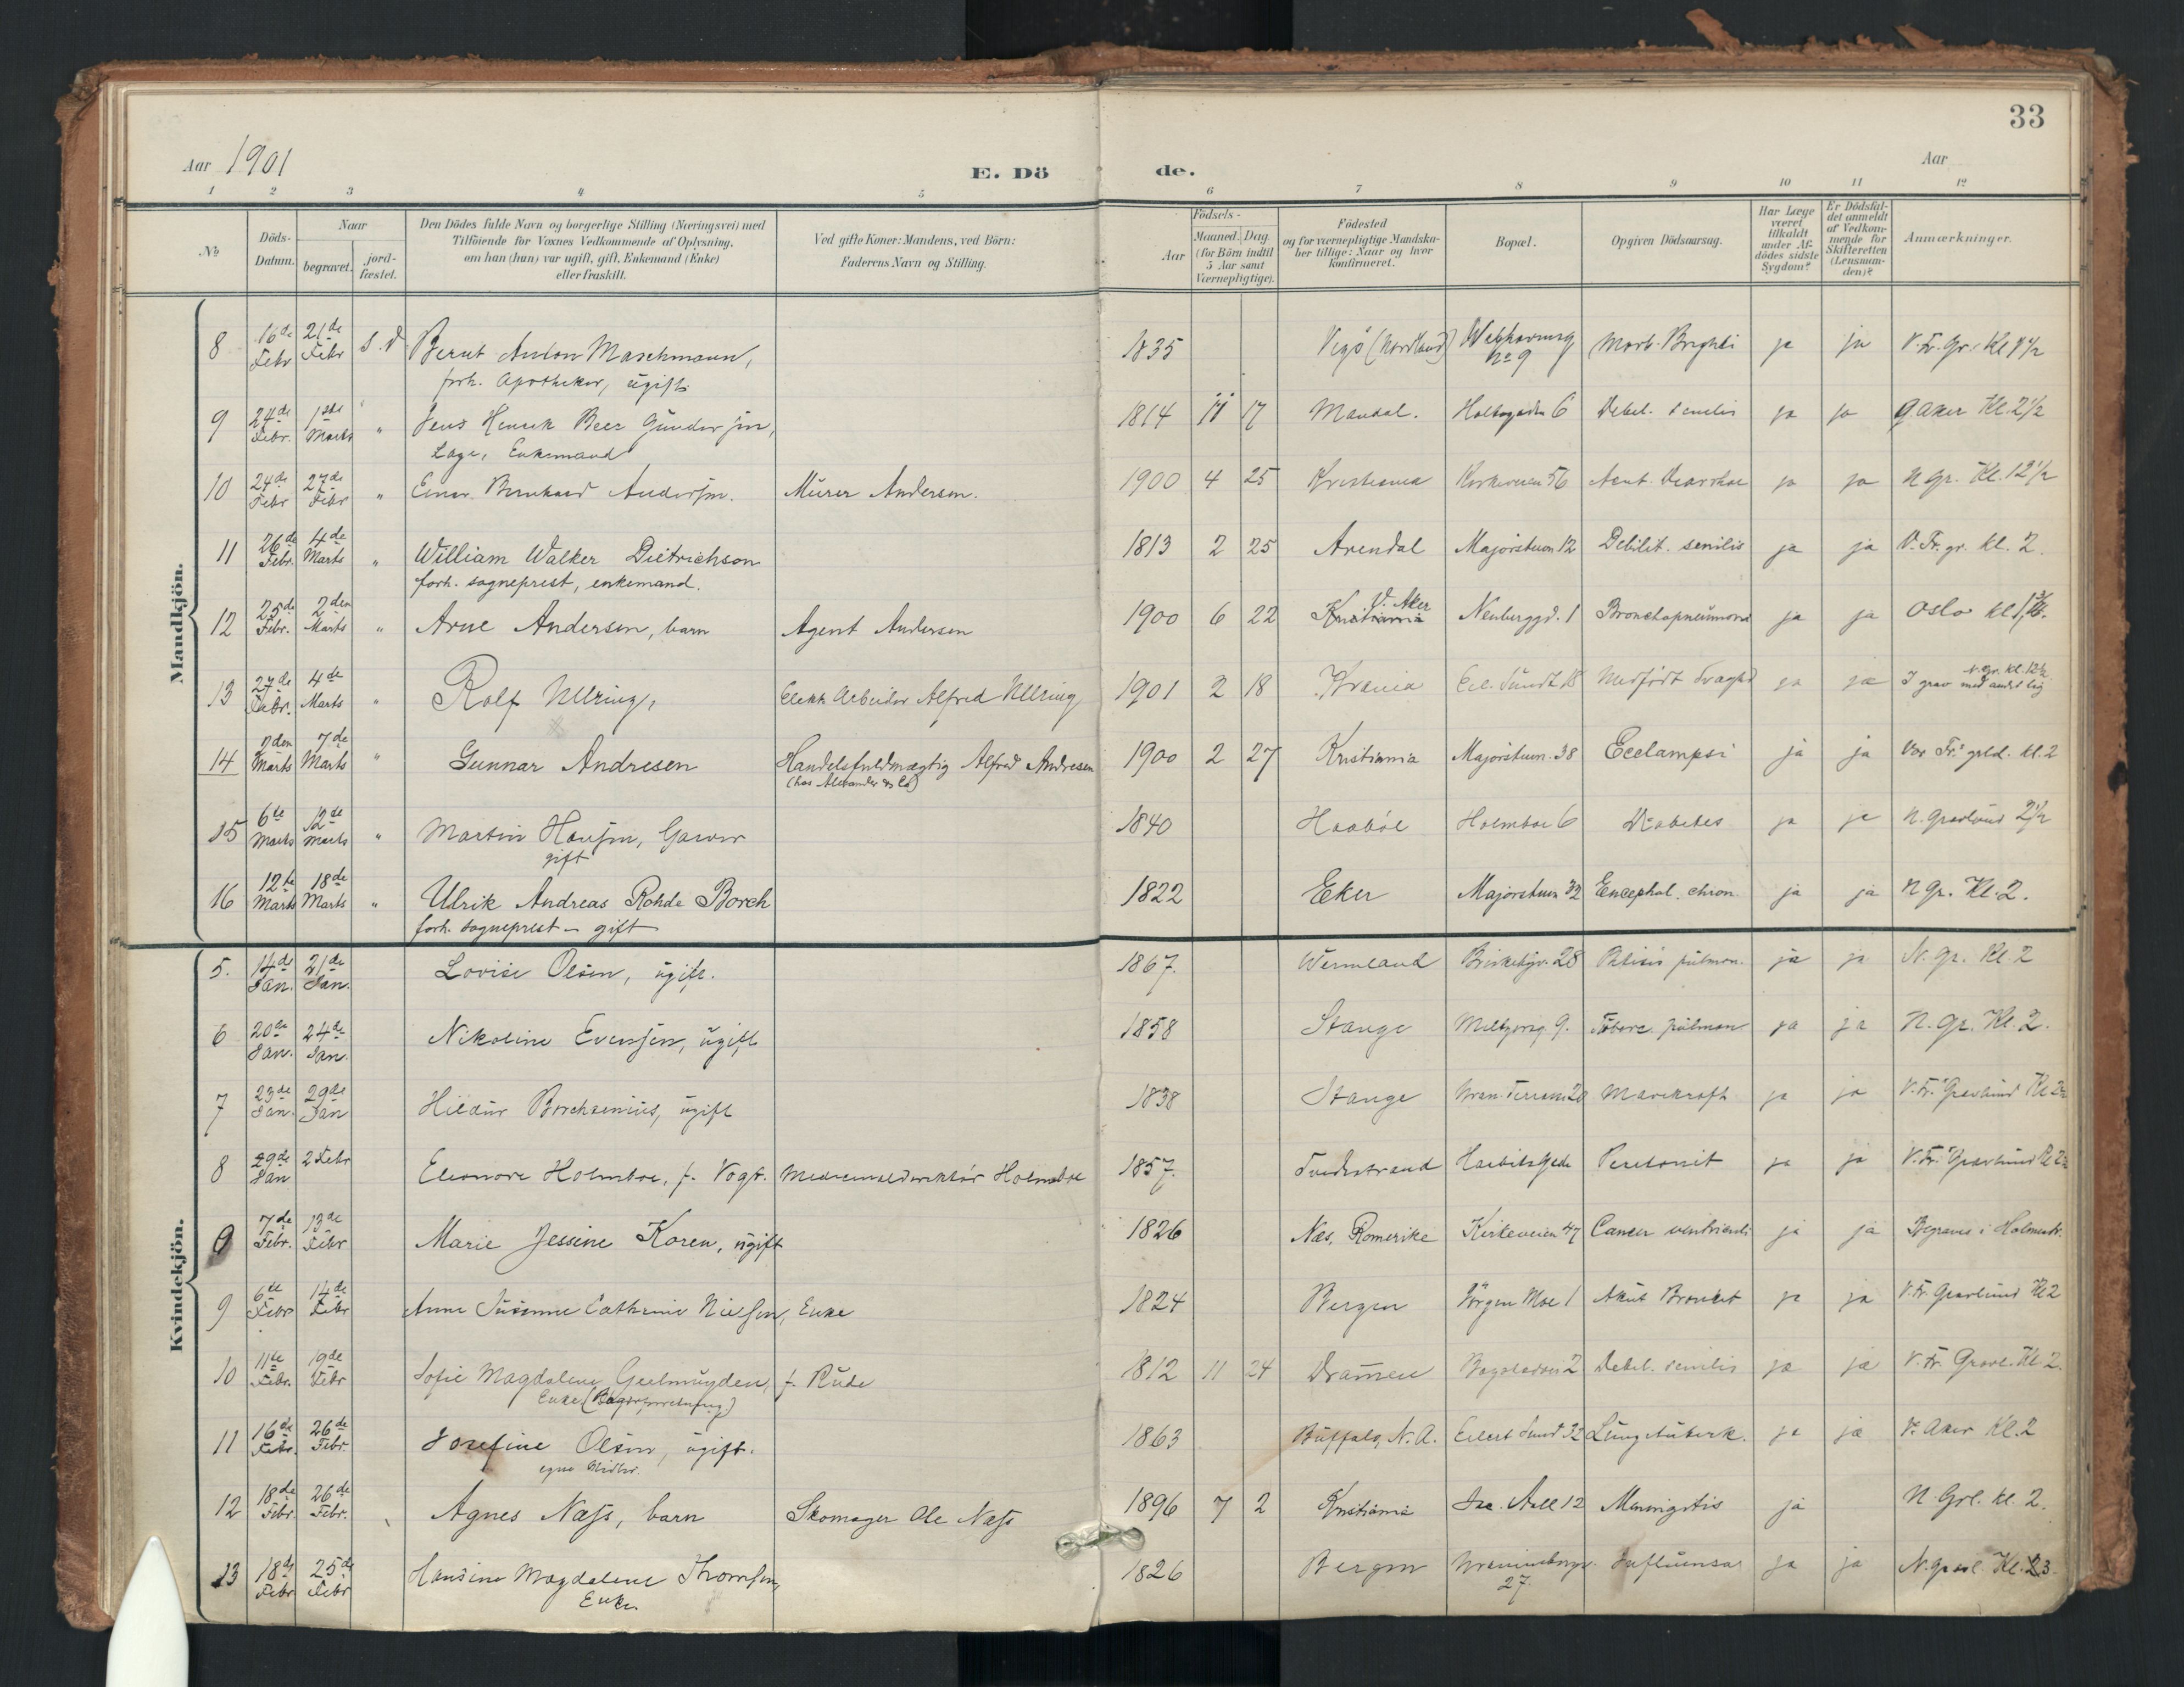 33
Aar 1901
E. Dö de.
Aar
1 2 3 4 5 6 7 8 9 10 11 12
No
Döds-Datum.
Naar begravet. jordfæstet.
Den Dödes fulde Navn og borgerlige Stilling (Næringsvei) med Tilföiende for Voxnes Vedkommende af Oplysning, om han (hun) var ugift, gift, Enkemand (Enke) eller fraskilt.
Ved gifte Koner: Mandens, ved Börn: Faderens Navn og Stilling.
Födsels-
Aar Maaned. Dag.
(for Börn indtil 5 Aar samt Værnepligtige).
Födested og for værnepligtige Mandskaber tillige: Naar og hvor konfirmeret.
Bopæl.
Opgiven Dödsaarsag.
Har Læge været tilkaldt under Afdödes sidste Sygdom?
Er Dödsfaldet anmeldt af Vedkommende for Skifteretten (Lensmanden)?
Anmærkninger.
Mandkjön.
8 16de Febr 21de Febr s. d. Bernt Anton Maschmann, 1835 Vegö (Nordland) No 9 Morb. Brighti ja ja V. Fr. Gr. Kl
forh. Apotheker, ugift
9 24de Febr. 1ste Marts " Jens Henrik Beer Gundersen, 1814 11 17 Mandal. 6 Debil. senilis ja ja Aker Kl. 2 1/2
Læge, Enkemand
10 24de Febr 27de Febr " Einar Bernhard Andersen. Murer Andersen. 1900 4 25 Kristiania Kirkeveien 56 Acut. Diarrhoe ja ja N. Gr. Kl. 12 1/2
11 26de Febr. 4de Marts " William Walker Dietrichson 1813 2 25 Arendal Majorstuen 12 Debilit. senilis ja ja V. Fr. gr. kl. 2.
forh. sogneprest, enkemand.
12 25de Febr. 2den Marts " Arne Andersen, barn Agent Andersen 1900 6 22 Kristiania V. Aker Neuberggd. 1 Bronchopneumoni ja ja Oslo kl
13 27de Febr. 4de Marts " Rolf Ullring, Elektr. Arbeider Alfred Ullring 1901 2 18 Krania Eil. Sundt 18 Medfödt Svaghed ja ja N. Gr. kl. 12 1/2
I grav med andet lig
14 2den Marts 7de Marts " Gunnar Andresen Handelsfuldmægtig Alfred Andresen 1900 2 27 Kristiania Majorstuen. 38 Eclampsi ja ja Vor Frs grld. kl. 2
(hos Alexander & Co)
15 6te Marts 12de Marts " Martin Hansen, Garver 1840 Haaböl Holmboe 6 Diabetes ja ja N. Gravlund 2 1/2
gift
16 12te Marts 18de Marts " Ulrik Andreas Rohde Borch 1822 Eker Majorstuen 32 Encephal. chron. ja ja N Gr. Kl. 2.
forh. sogneprest - gift
Kvindekjön.
5. 14de Jan. 21de Jan. Lovise Olsen, ugift. 1867. Wermland Briskebyv. 28 Phtisis pulmon. ja ja N. Gr. Kl. 2
6 20de Jan. 24de Jan. Nikoline Evensen, ugift 1858 Stange Meltzersg. 9. Töberc. pulmon ja ja N. Gr. Kl. 2.
7 23de Jan. 29de Jan Hildur Borchsenius, ugift 1838 Stange Uran. Terrasse 20 Marekraft ja ja V. Fr. Gravlund Kl 2
8 29de Jan 2 Febr Eleonore Holmboe, f. Vogt. Medicinaldirektör Holmboe 1857. Tvedestrand Peretonit ja ja V. Fr. Gravlund Kl 2
9 7de Febr. 13de Febr Marie Jessine Koren, ugift 1826 Næs, Romerike Kirkeveien 47 Cancer ventriculi ja ja Begraves i Holmestr.
9 6te Febr 14de Febr Anna Susanne Cathrine Nielsen, Enke 1824 Bergen Jörgen Moe 1 Akut Bronkit ja ja V. Fr. Gravlund Kl 2
10 11te Febr. 19de Febr Sofie Magdalene Geelmuyden, f. Rude 1812 11 24 Dramen Bogstadvei 2 Debil. senilis ja ja V. Fr. Gravl. Kl 2.
Enke
11 16de Febr. 26de Febr. Josefine Olsen, ugift. 1863 Buffalo, N. A. Eilert Sund 32 Lungetuberk. ja ja V. Aker Kl. 2
egne Midler.
12 18de Febr. 26de Febr. Agnes Næss, barn Skomager Ole Næss 1896 7 2 Kristiania Jac. Aall 12 Meningitis ja N. Grl. kl. 2.
13 18de Febr 25de Febr Hansine Magdalene Thomsen, 1826 Bergen Uranienborgv. 27 Influensa ja ja N. Gravl. Kl. 3.
Enke.